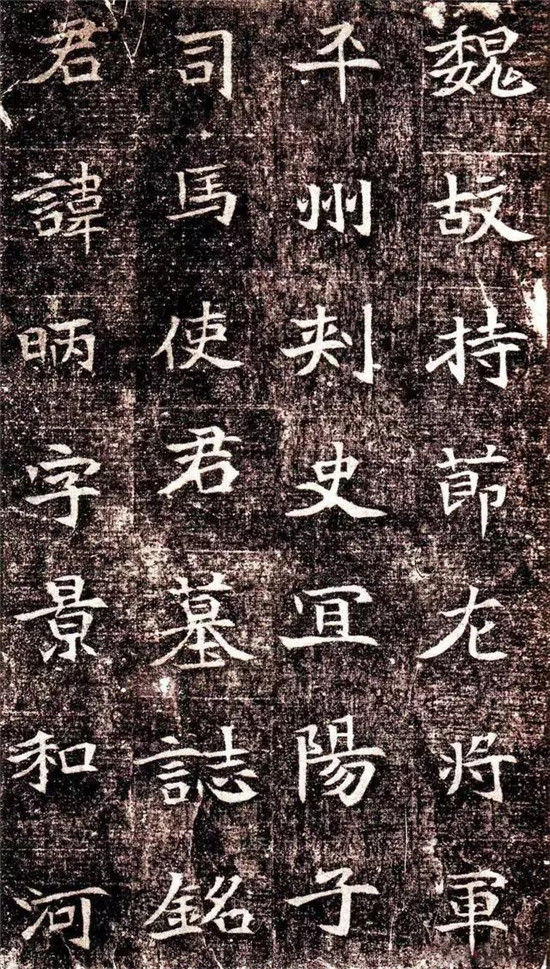 魏故持莭左将軍
平州刾史冝陽子
司馬使君墓誌銘
君諱昞字景和河